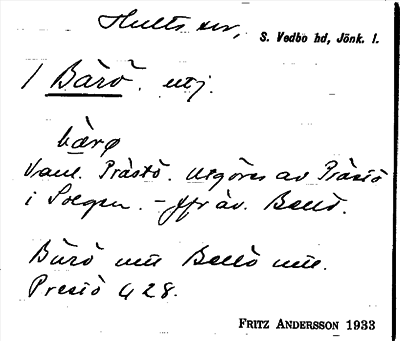 Hults sn,
S. Vedbo hd, Jönk. l.
/ Bärö. utj.
bærø
Vanl. Prästö. Utgöres av Prästö
i Solgen. – Jfr äv. Bellö.
Bärö utj. Bellö utj.
Prestö G 28.
FRITZ ANDERSSON 1933